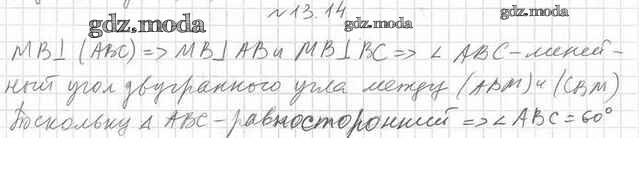 №13.14
gdz.moda gdz.moda gdz.moda
MB⊥(ABC) => MB⊥AB и MB⊥BC => ∠ABC - линей-
ный угол двугранного угла между (ABM) и (CBM)
Поскольку △ABC - равносторонний => ∠ABC = 60°